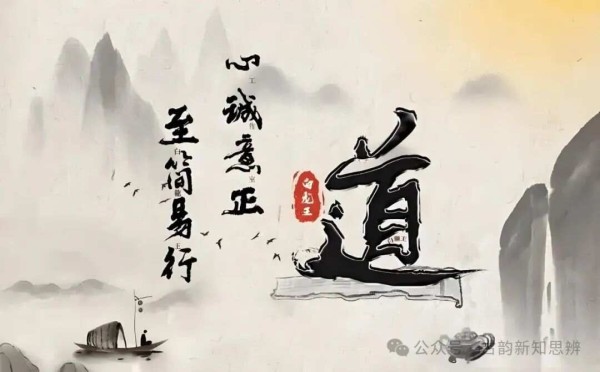 道
白龙王
心诚意正
至简易行
公众号 · 古韵新知思辨